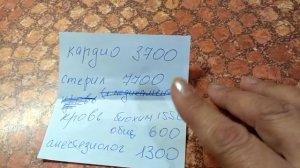 кардио 3700
стерил 7700
кровь биохим 1550
общ 600
анестезиолог 1300